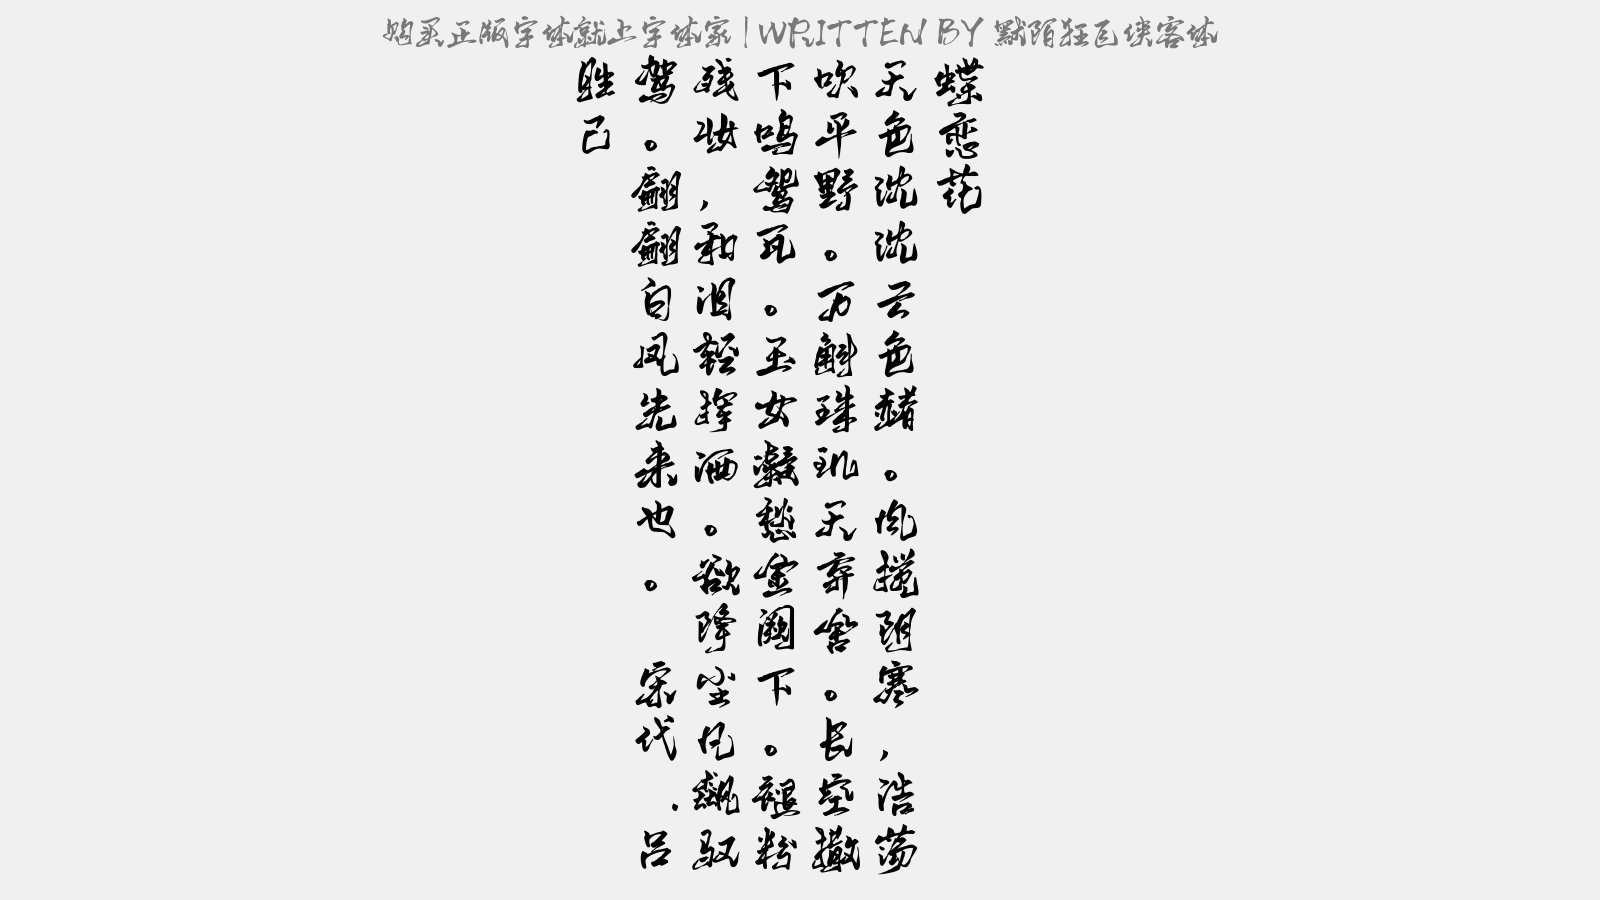 购买正版字体就上字体家 | WRITTEN BY 默陌狂飞侠客体
蝶恋花
天色沈沈云色赭。风搅阴寒，浩荡
吹平野。万斛珠玑天弃舍。长空撒
下鸣鸳瓦。玉女凝愁金阙下。褪粉
残妆，和泪轻挥洒。欲降尘凡飙驭
驾。翩翩白凤先来也。 宋代.吕
胜己